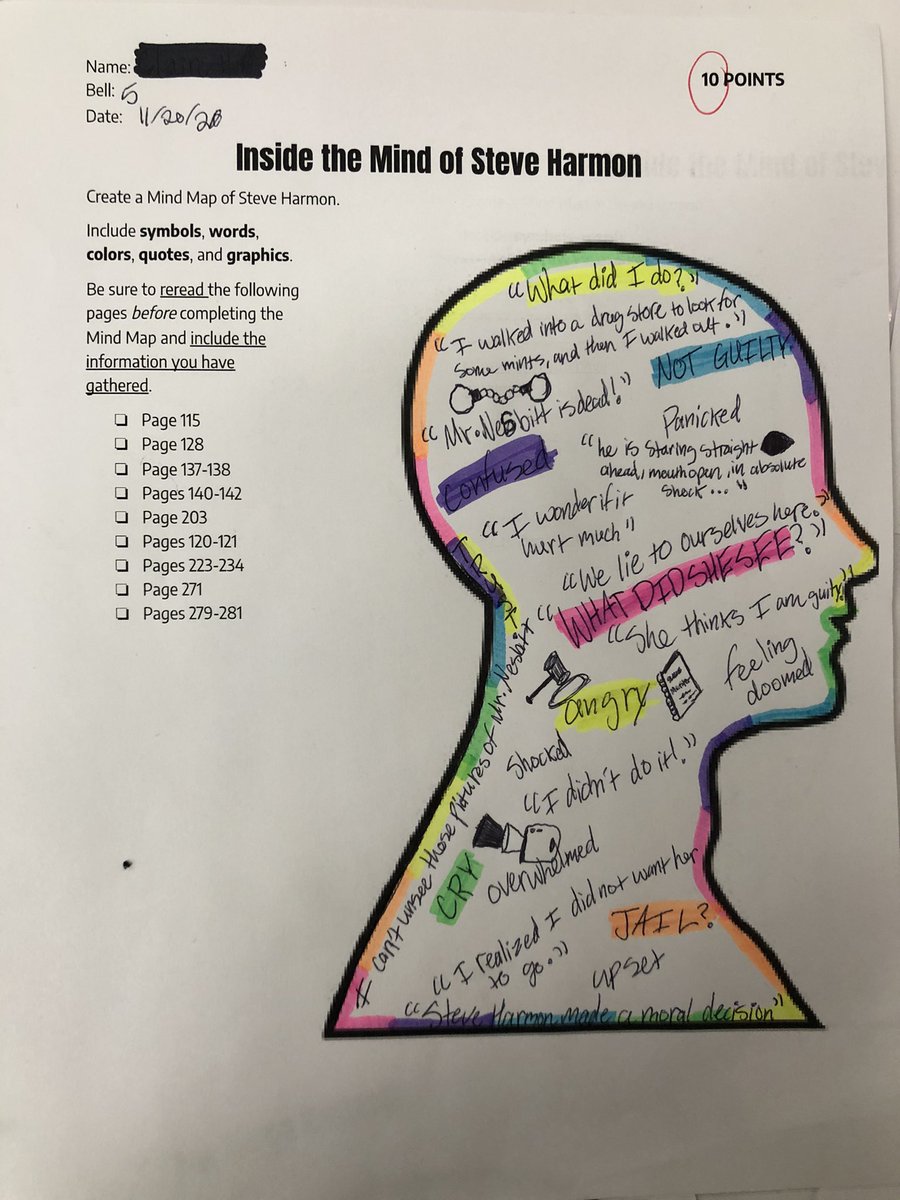 Name:
10 POINTS
Bell: 5
Date: 11/20/20
Inside the Mind of Steve Harmon
Create a Mind Map of Steve Harmon.
Include symbols, words,
colors, quotes, and graphics.
Be sure to reread the following
pages before completing the
Mind Map and include the
information you have
gathered.
Page 115
Page 128
Page 137-138
Pages 140-142
Page 203
Pages 120-121
Pages 223-234
Page 271
Pages 279-281
"What did I do?"
"I walked into a drug store to look for
some mints, and then I walked out."
NOT GUILTY
"Mr. Nesbitt is dead!"
Panicked
confused
"he is staring straight
ahead, mouth open, in absolute
shock..."
"I wonder if it
hurt much"
"We lie to ourselves here."
"WHAT DID SHE SEE?"
"She thinks I am guity."
angry
feeling
doomed
shocked
"I didn't do it!"
CRY
overwhelmed
I can't unsee those pictures of Mr. Nesbitt
"I realized I did not want her
to go."
JAIL?
upset
"Steve Harmon made a moral decision"